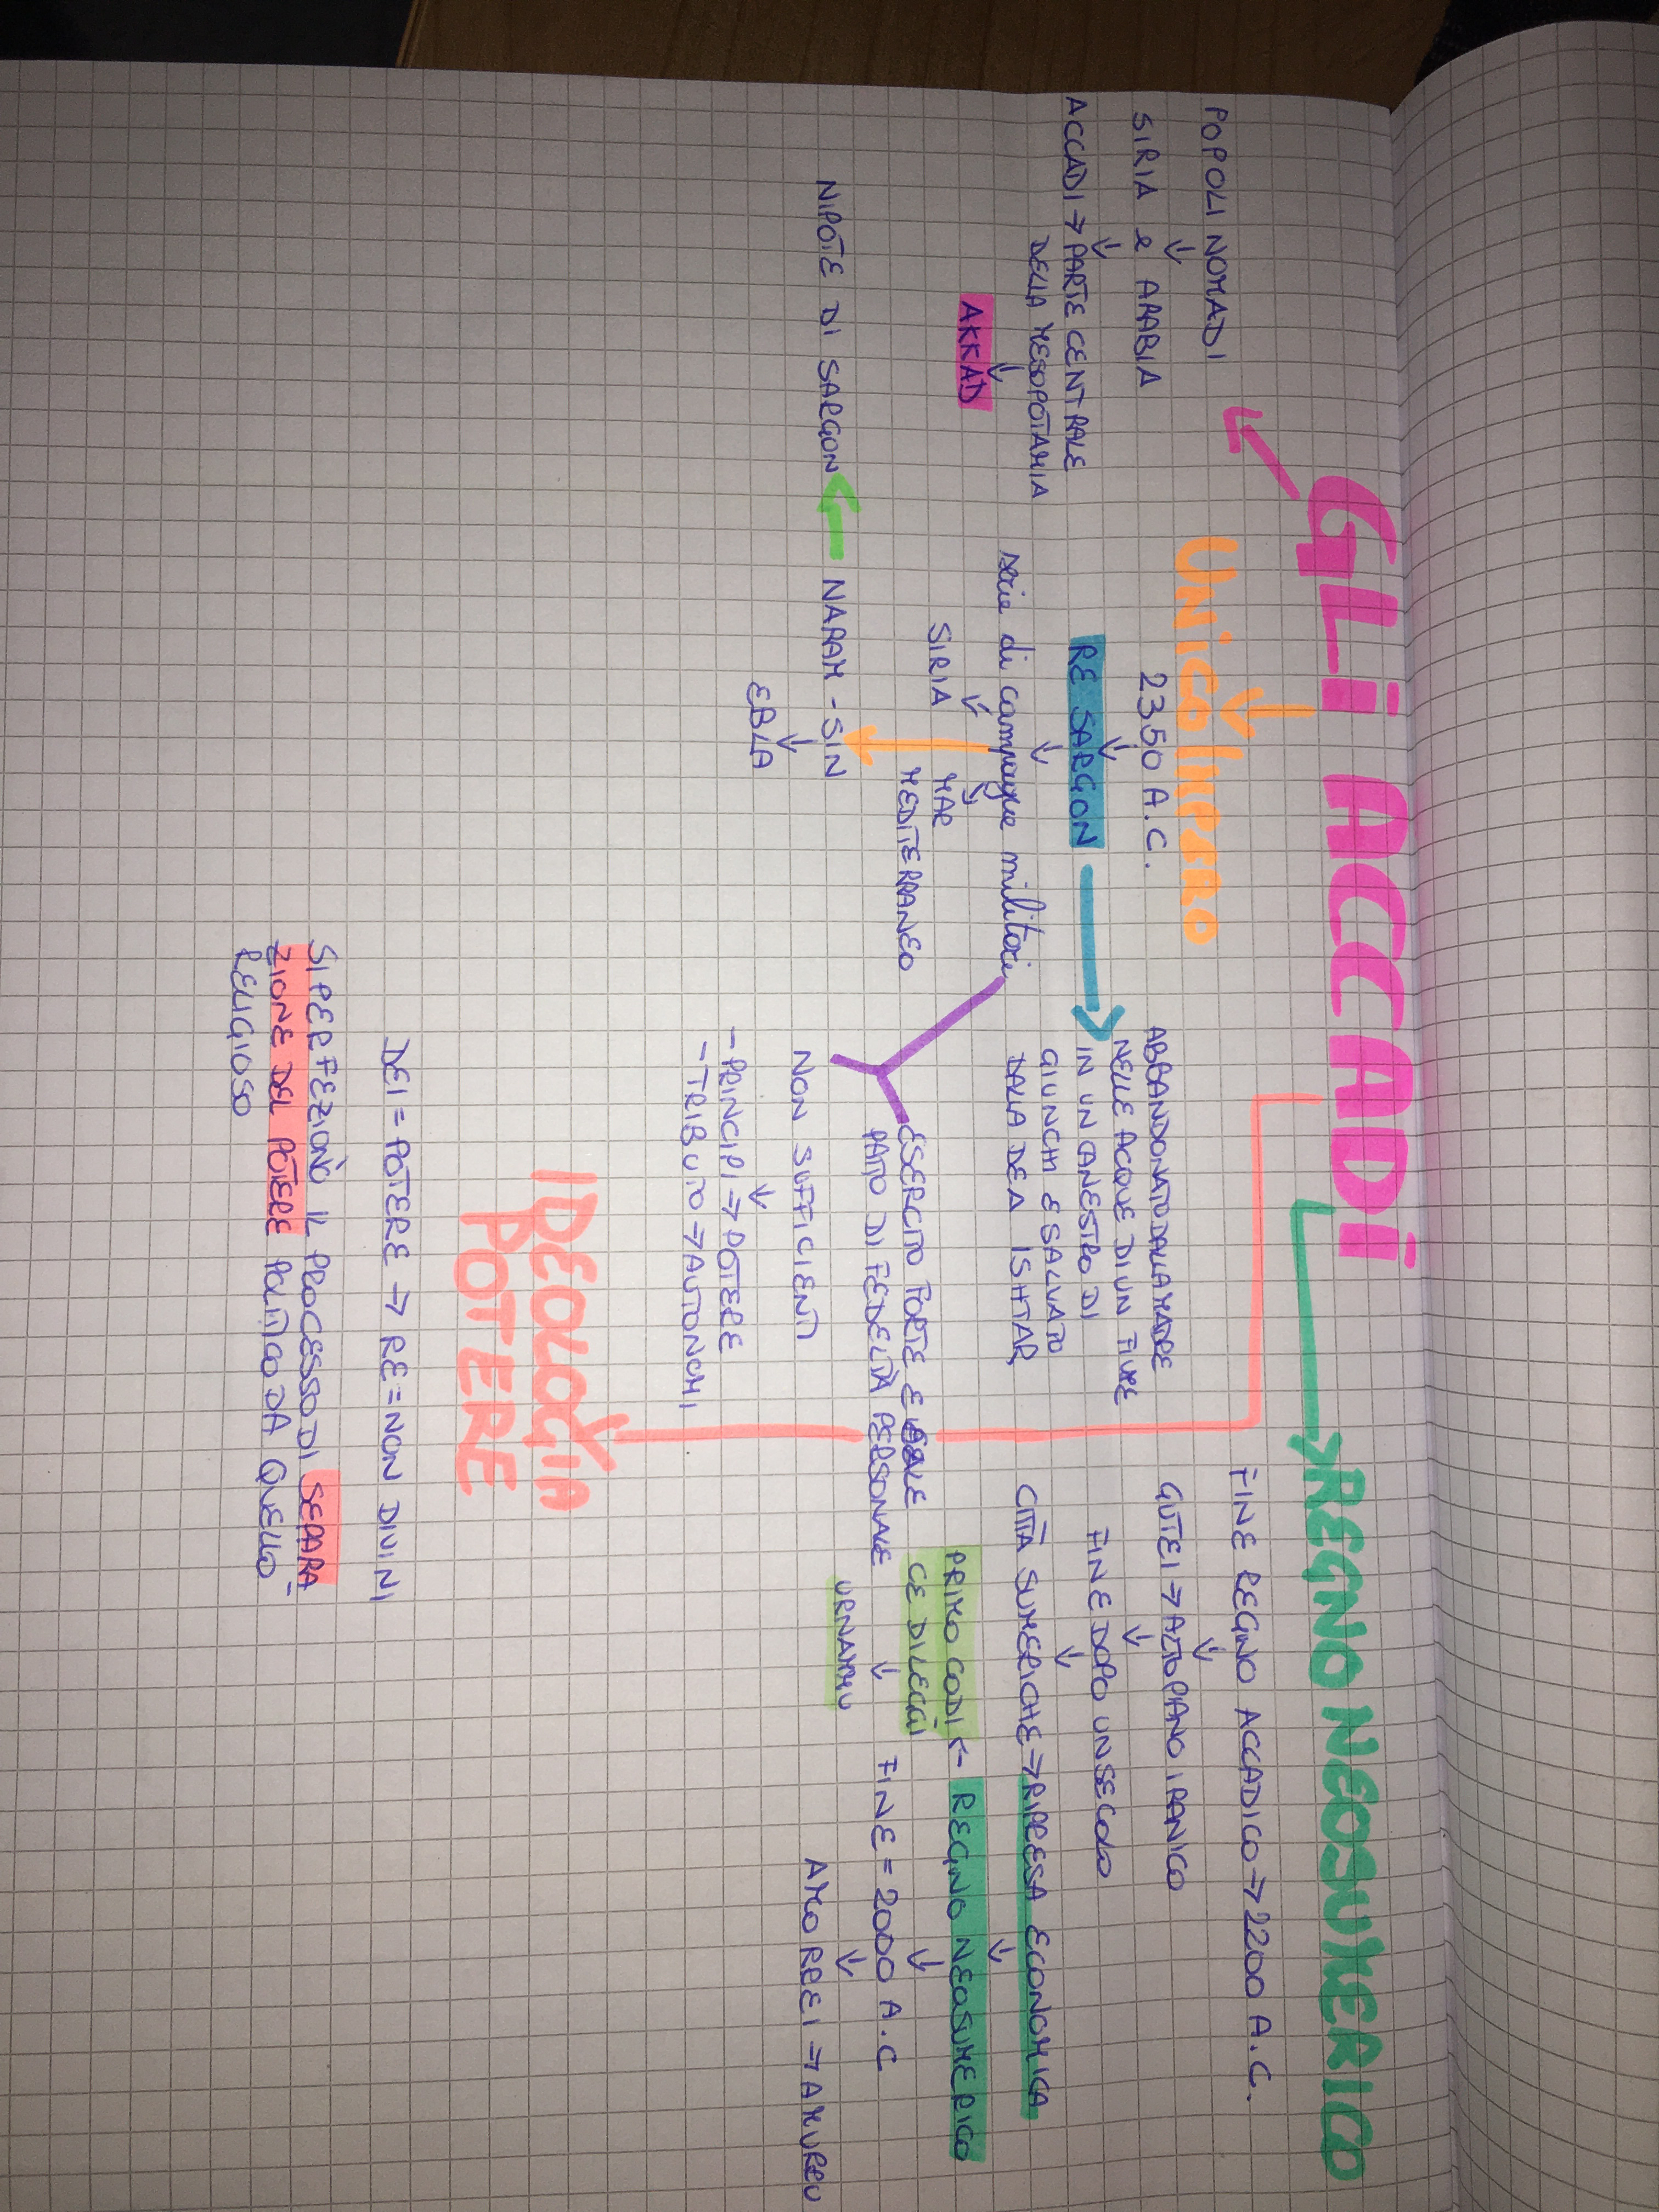 GLI ACCADI
POPOLI NOMADI
↓
SIRIA e ARABIA
↓
ACCADI → PARTE CENTRALE
DELLA MESOPOTAMIA
↓
AKKAD
UNICO IMPERO
2350 A.C.
↓
RE SARGON →
↓
serie di campagne militari
SIRIA
MAR
MEDITERRANEO
NARAM-SIN
NIPOTE DI SARGON
↓
EBLA
ABBANDONATO DALLA MADRE
NELLE ACQUE DI UN FIUME
IN UN CANESTRO DI
GIUNCHI E SALVATO
DALLA DEA ISHTAR
ESERCITO FORTE E
PATTO DI FEDELTÀ PERSONALE
NON SUFFICIENTI
↓
- PRINCIPI → POTERE
- TRIBUTO → AUTONOMI
IDEOLOGIA
POTERE
DEI = POTERE → RE = NON DIVINI
SI PERFEZIONÒ IL PROCESSO DI SEPARA-
ZIONE DEL POTERE POLITICO DA QUELLO
RELIGIOSO
REGNO NEOSUMERICO
FINE REGNO ACCADICO → 2200 A.C.
↓
GUTEI → ALTOPIANO IRANICO
↓
FINE DOPO UN SECOLO
↓
CITTÀ SUMERICHE → RIPRESA ECONOMICA
↓
PRIMO CODI ← REGNO NEOSUMERICO
CE DI LEGGI
↓
URNAMMU
↓
FINE = 2000 A.C
↓
AMORREI → AMURRU